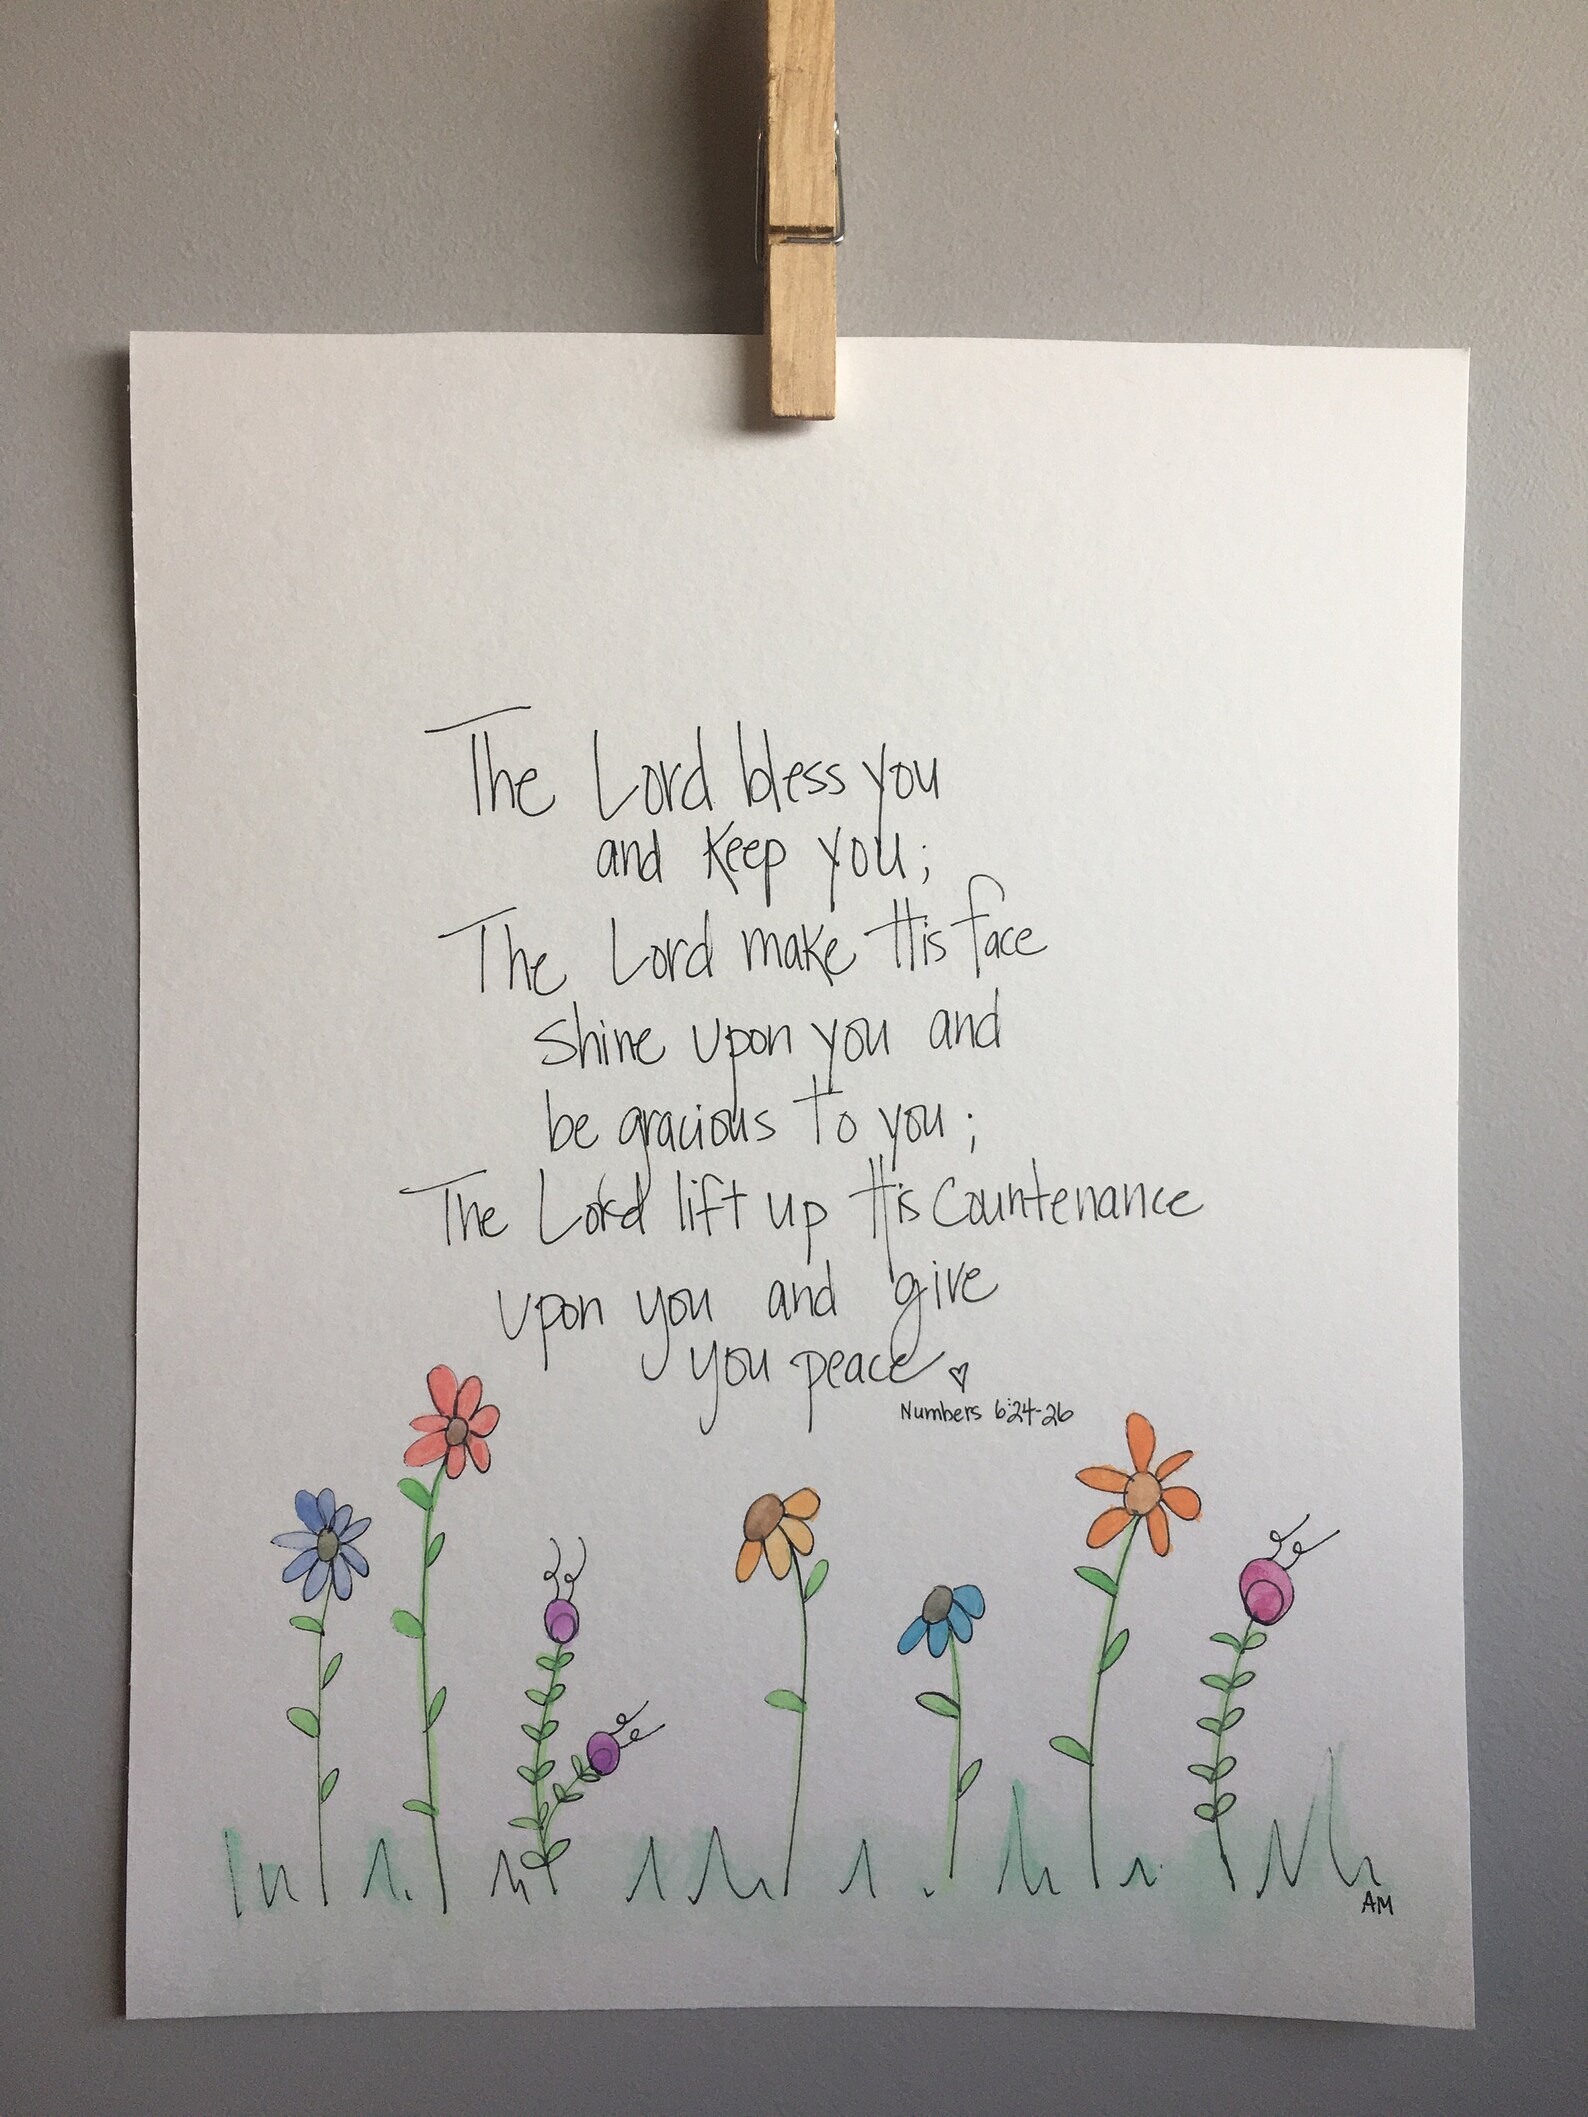 The Lord bless you
and keep you;
The Lord make His face
shine upon you and
be gracious to you;
The Lord lift up His Countenance
upon you and give
you peace
Numbers 6:24-26
AM